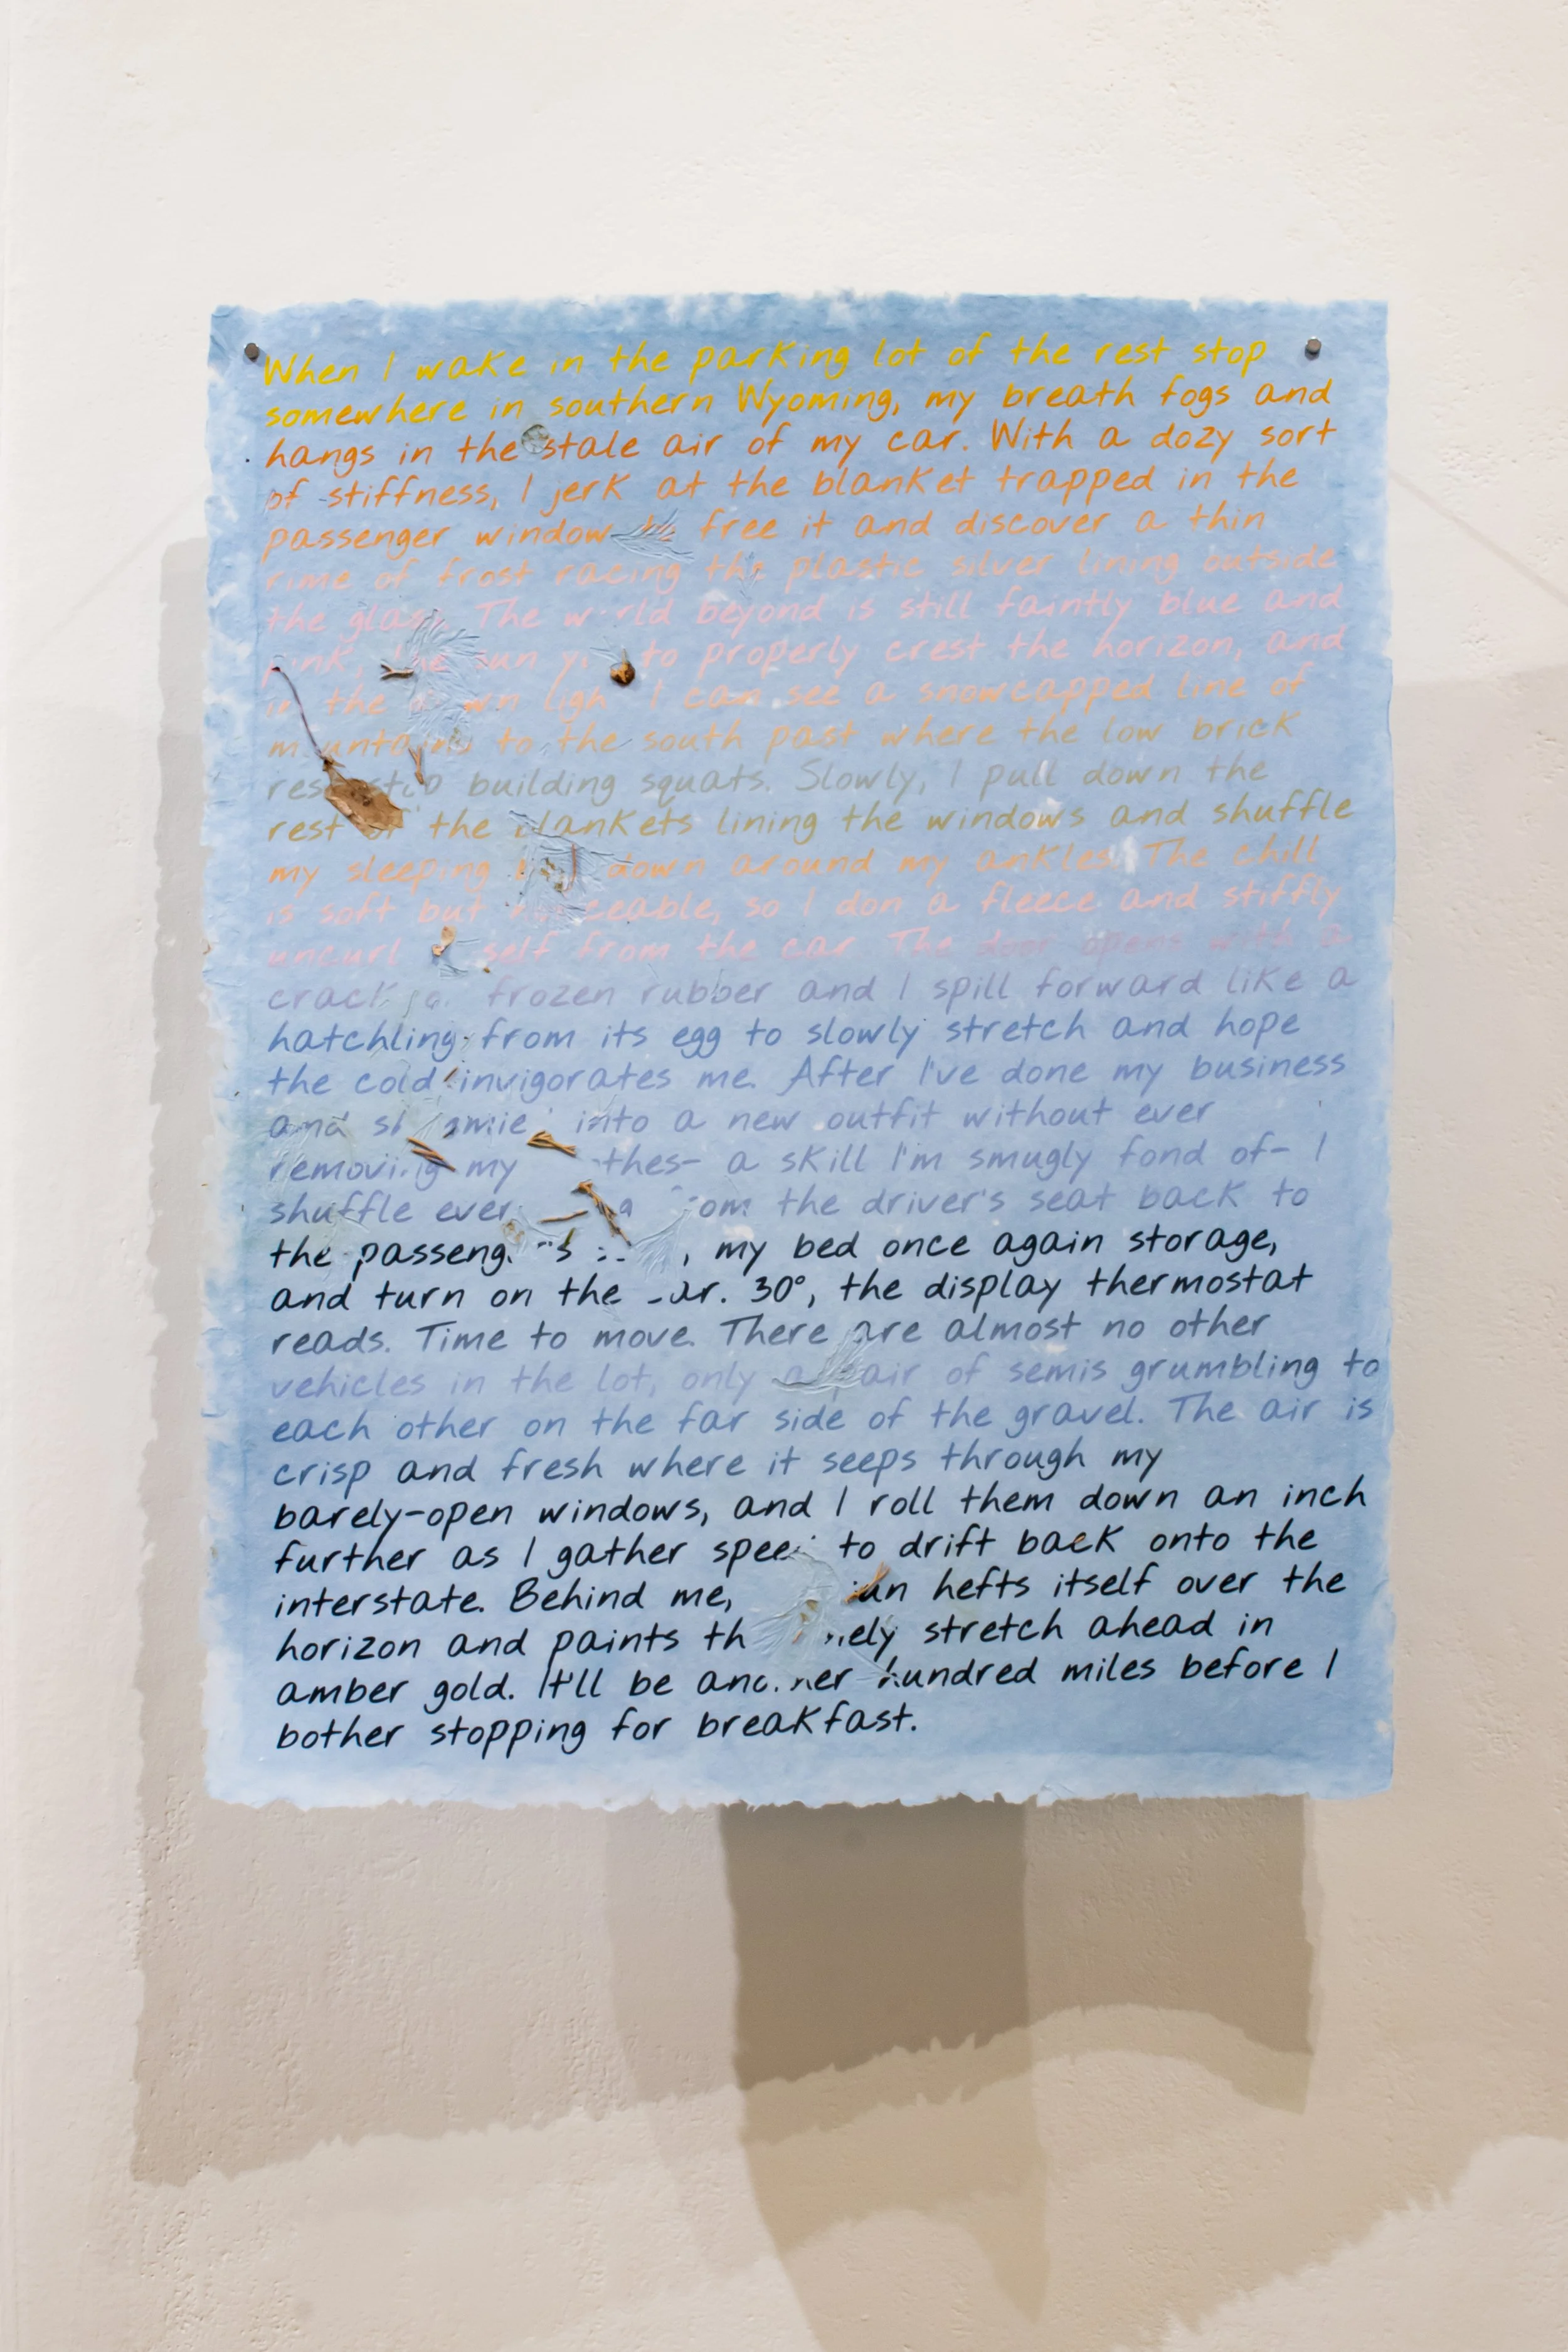 When I wake in the parking lot of the rest stop
somewhere in southern Wyoming, my breath fogs and
hangs in the stale air of my car. With a dozy sort
of stiffness, I jerk at the blanket trapped in the
passenger window free it and discover a thin
rime of frost racing the plastic silver lining outside
the glass. The world beyond is still faintly blue and
pink, the sun to properly crest the horizon, and
in the light I can see a snowcapped line of
mountains to the south past where the low brick
building squats. Slowly, I pull down the
rest the blankets lining the windows and shuffle
my sleeping down around my ankles. The chill
is soft but noticeable, so I don a fleece and stiffly
uncurl from the car. The door opens with a
frozen rubber and I spill forward like a
hatchling from its egg to slowly stretch and hope
the cold invigorates me. After I've done my business
and into a new outfit without ever
removing my - a skill I'm smugly fond of- I
shuffle the driver's seat back to
the , my bed once again storage,
and turn on the 30°, the display thermostat
reads. Time to move. There are almost no other
vehicles in the lot, only a pair of semis grumbling to
each other on the far side of the gravel. The air is
crisp and fresh where it seeps through my
barely-open windows, and I roll them down an inch
further as I gather speed to drift back onto the
interstate. Behind me, hefts itself over the
horizon and paints stretch ahead in
amber gold. It'll be another hundred miles before I
bother stopping for breakfast.